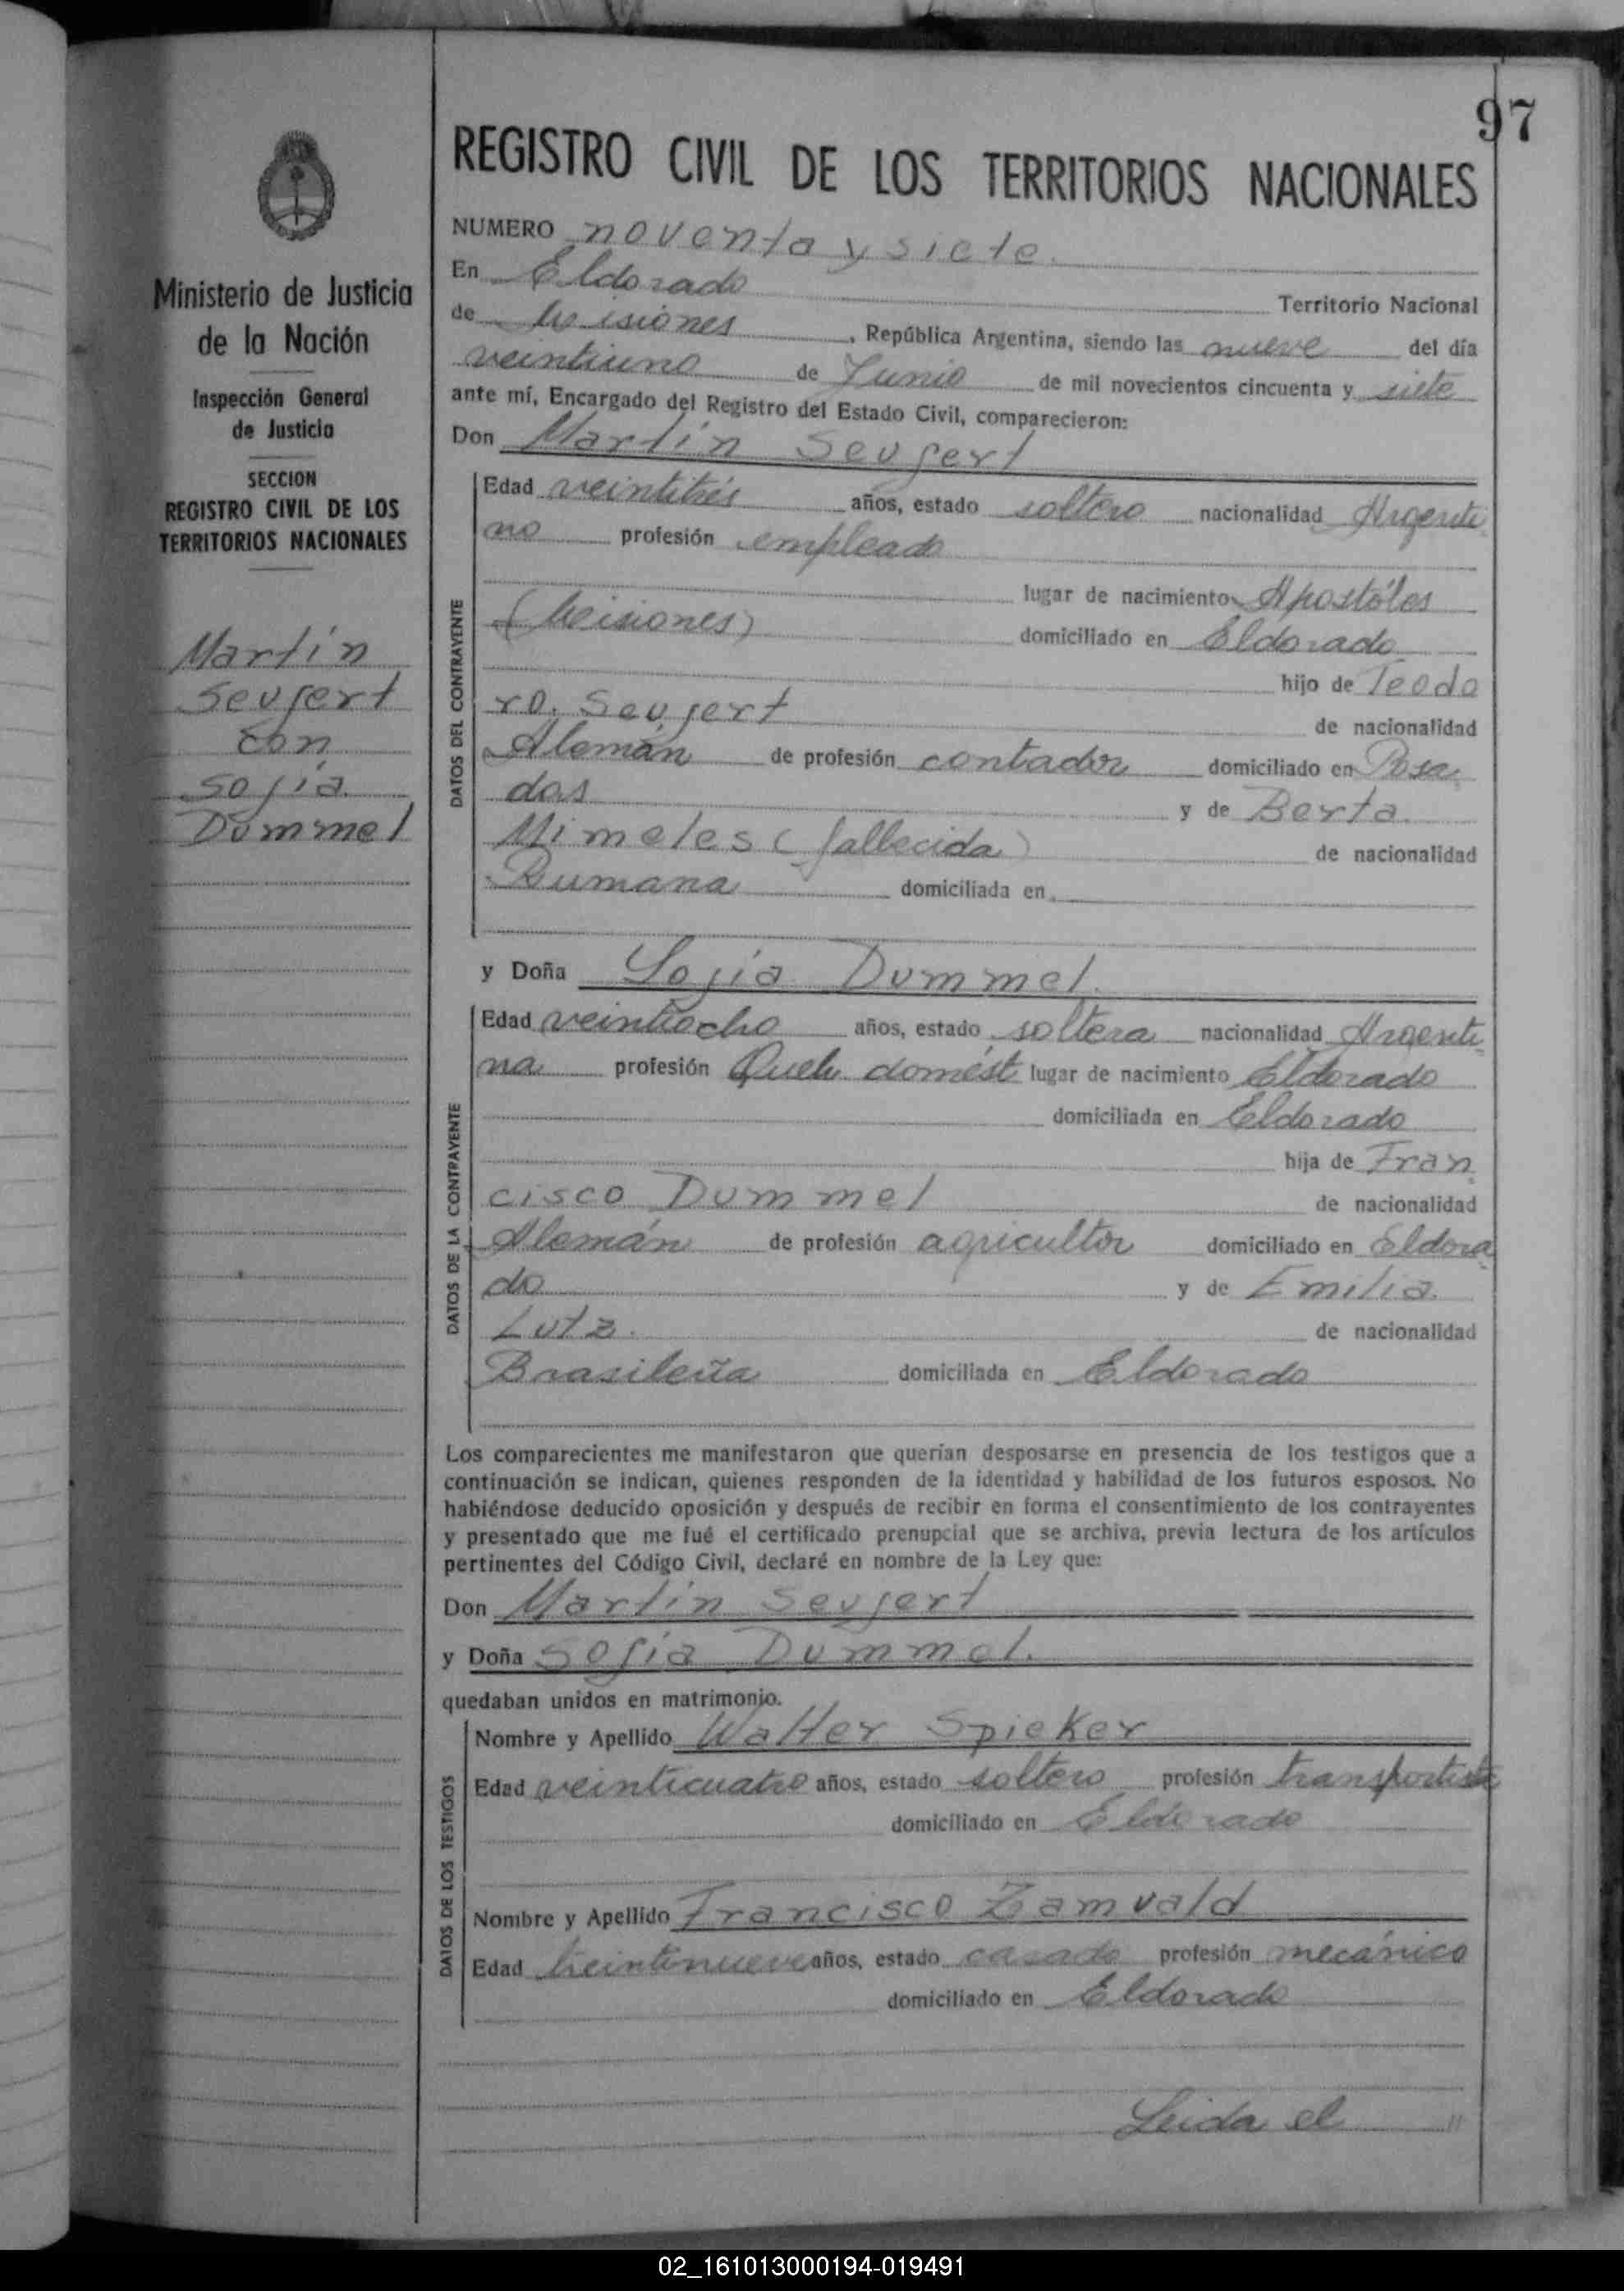 97
REGISTRO CIVIL DE LOS TERRITORIOS NACIONALES
Ministerio de Justicia
de la Nación
Inspección General
de Justicia
SECCION
REGISTRO CIVIL DE LOS
TERRITORIOS NACIONALES
Martín
Seufert
con
Sofía
Dummel
NUMERO noventa y siete.
En Eldorado Territorio Nacional
de Misiones, República Argentina, siendo las nueve del día
veintiuno de Junio de mil novecientos cincuenta y siete
ante mí, Encargado del Registro del Estado Civil, comparecieron:
Don Martín Seufert
DATOS DEL CONTRAYENTE
Edad veintitrés años, estado soltero nacionalidad Argenti
no profesión empleado
lugar de nacimiento Apostóles
(Misiones) domiciliado en Eldorado
hijo de Teodo
ro. Seufert de nacionalidad
Alemán de profesión contador domiciliado en Posa
das y de Berta
Mimeles (fallecida) de nacionalidad
Rumana domiciliada en
y Doña Sofía Dummel.
DATOS DE LA CONTRAYENTE
Edad veintiocho años, estado soltera nacionalidad Argenti
na profesión Queh. domést. lugar de nacimiento Eldorado
domiciliada en Eldorado
hija de Fran
cisco Dummel de nacionalidad
Alemán de profesión agricultor domiciliado en Eldora
do y de Emilia
Lutz. de nacionalidad
Brasileña domiciliada en Eldorado
Los comparecientes me manifestaron que querían desposarse en presencia de los testigos que a
continuación se indican, quienes responden de la identidad y habilidad de los futuros esposos. No
habiéndose deducido oposición y después de recibir en forma el consentimiento de los contrayentes
y presentado que me fué el certificado prenupcial que se archiva, previa lectura de los artículos
pertinentes del Código Civil, declaré en nombre de la Ley que:
Don Martín Seufert
y Doña Sofía Dummel.
quedaban unidos en matrimonio.
DATOS DE LOS TESTIGOS
Nombre y Apellido Walter Spieker
Edad veinticuatro años, estado soltero profesión transportista
domiciliado en Eldorado
Nombre y Apellido Francisco Zamvald
Edad treintinueve años, estado casado profesión mecánico
domiciliado en Eldorado
Leida el //
02_161013000194-019491